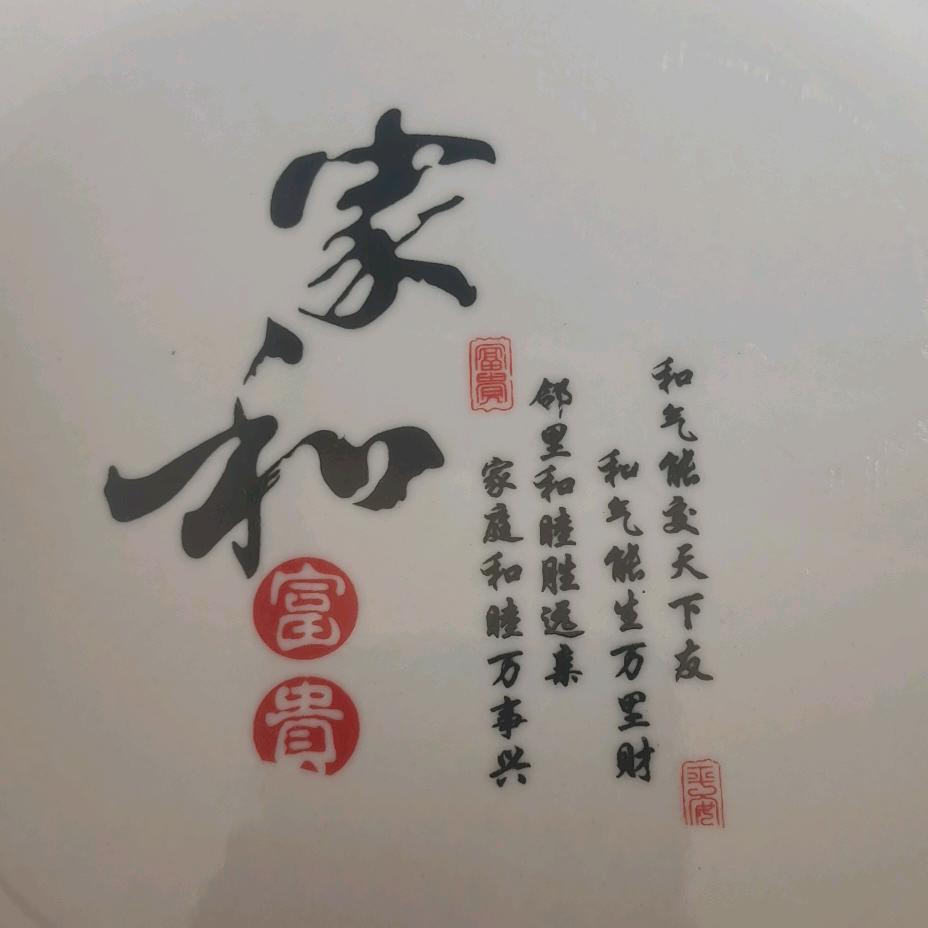 家和
富貴
和气能交天下友
和气能生万里财
邻里和睦胜远亲
家庭和睦万事兴
富貴
平安